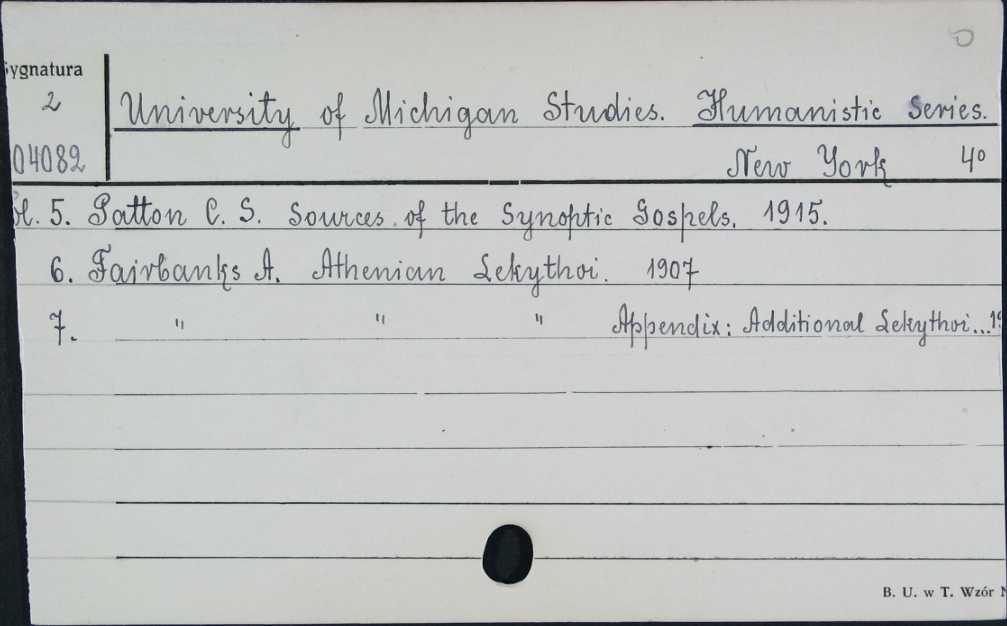 ygnatura
2
04082
University of Michigan Studies. Humanistic Series.
New York 4°
ol. 5. Patton C. S. Sources of the Synoptic Gospels. 1915.
6. Fairbanks A. Athenian Lekythoi. 1907
7. " " " Appendix: Additional Lekythoi...
B. U. w T. Wzór